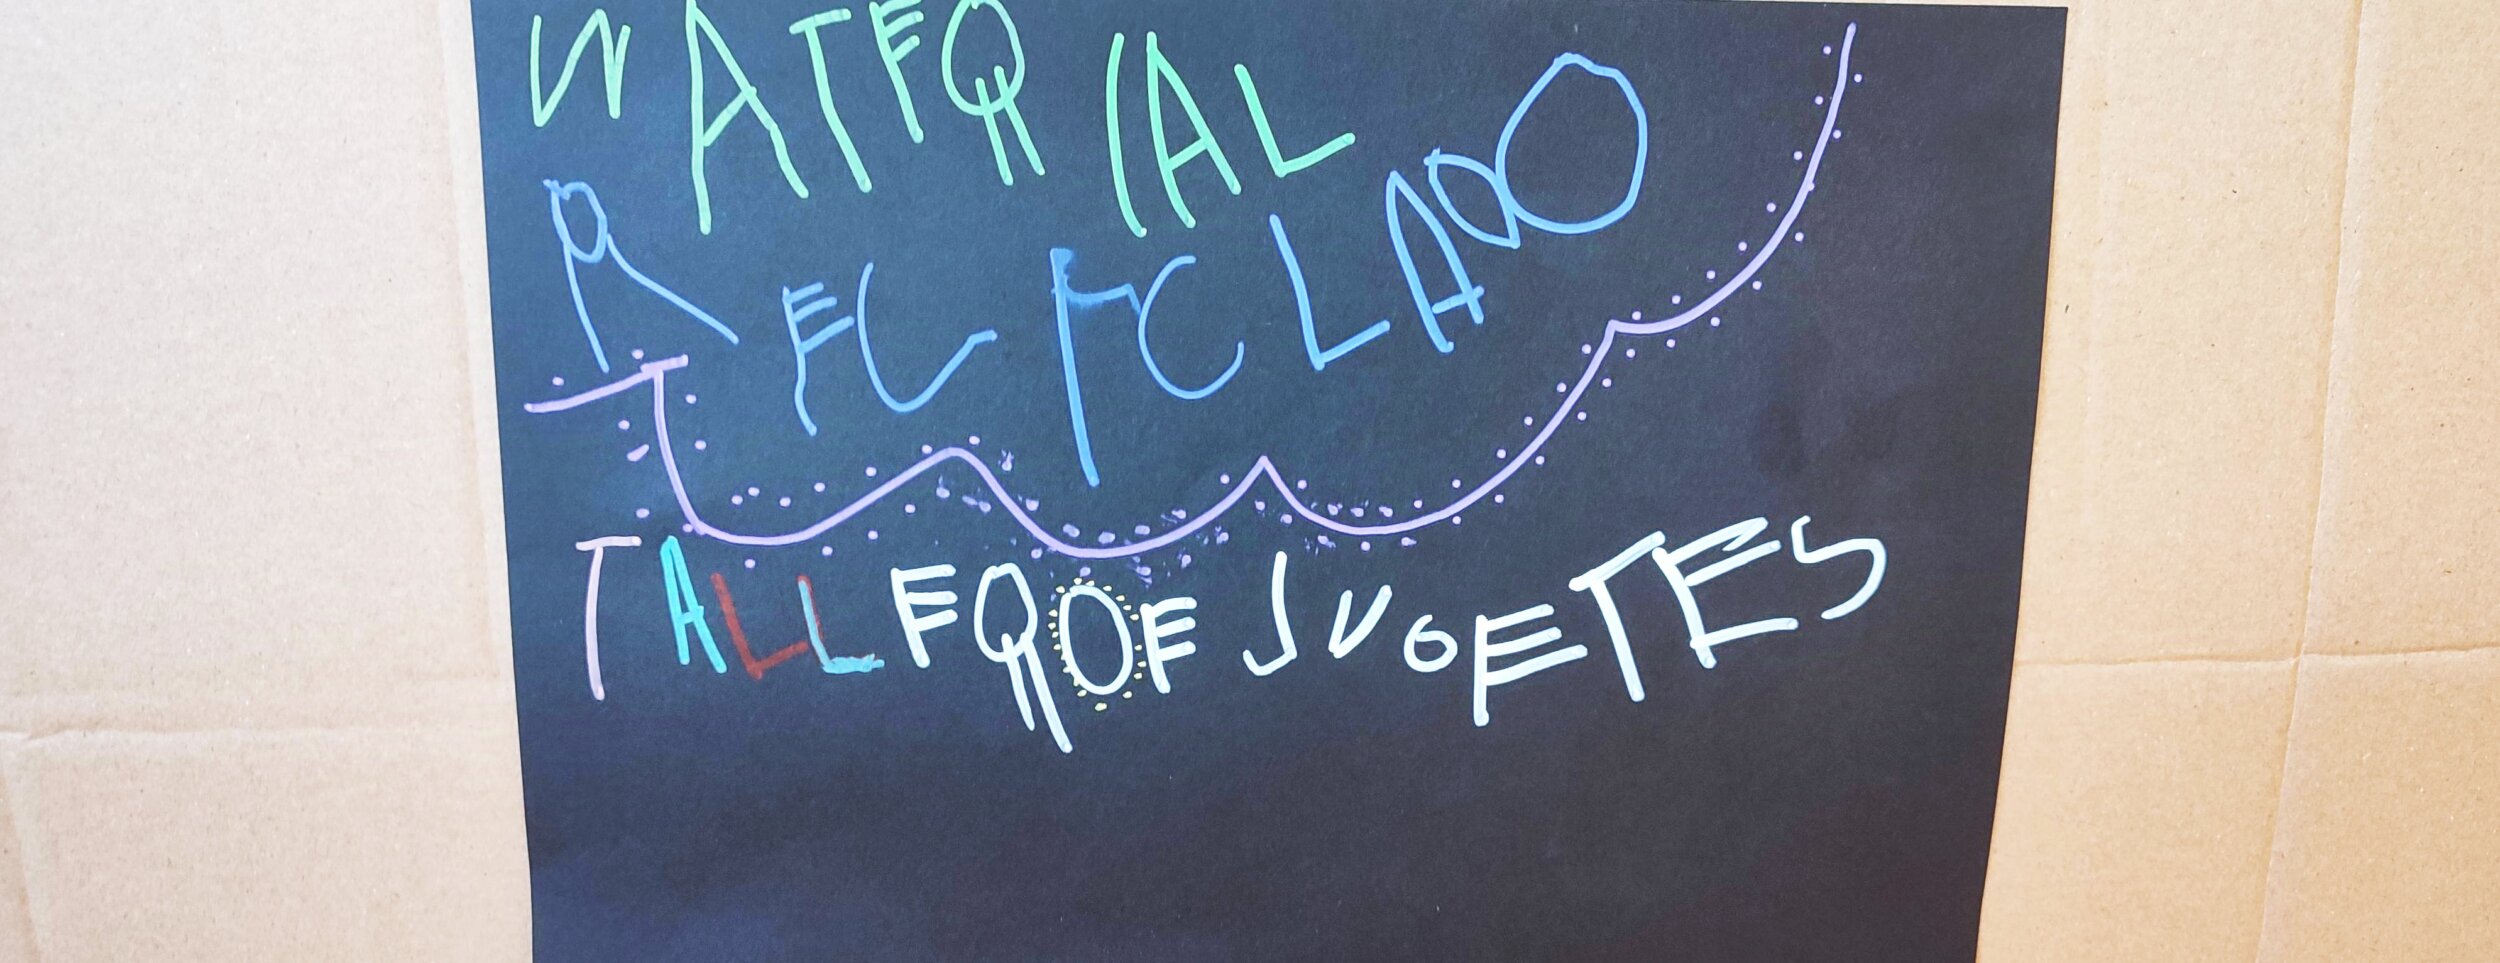 MATERIAL
RECICLADO
TALLER DE JUGETES